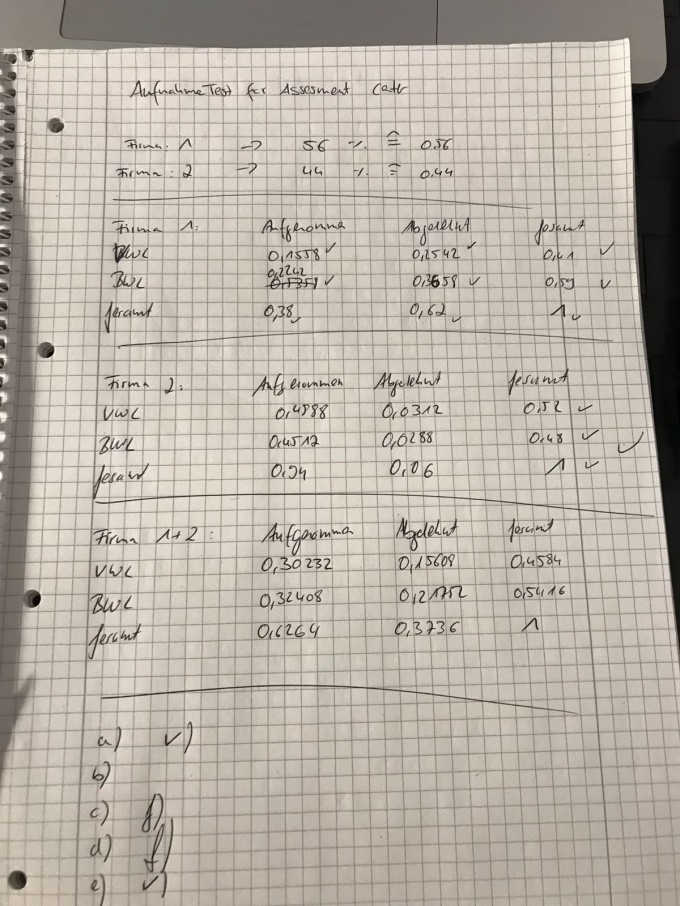 Aufnahme Test for Assesment Cente
Firma: 1 -> 56 % ≙ 0.56
Firma: 2 -> 44 % ≙ 0.44
Firma 1: Aufgenomme Abgelehnt gesamt
VWL 0,1558 ✓ 0,2542 ✓ 0,41 ✓
0,2242
BWL ✓ 0,3658 ✓ 0,59 ✓
gesamt 0,38 ✓ 0,62 ✓ 1 ✓
Firma 2: Aufgenommen Abgelehnt gesamt
VWL 0,4888 0,0312 0,52 ✓
BWL 0,4512 0,0288 0,48 ✓ ✓
gesamt 0,94 0,06 1 ✓
Firma 1+2: Aufgenommen Abgelehnt gesamt
VWL 0,30232 0,15608 0,4584
BWL 0,32408 0,21752 0,5416
gesamt 0,6264 0,3736 1
a) ✓)
b)
c) f)
d) f)
e) ✓)